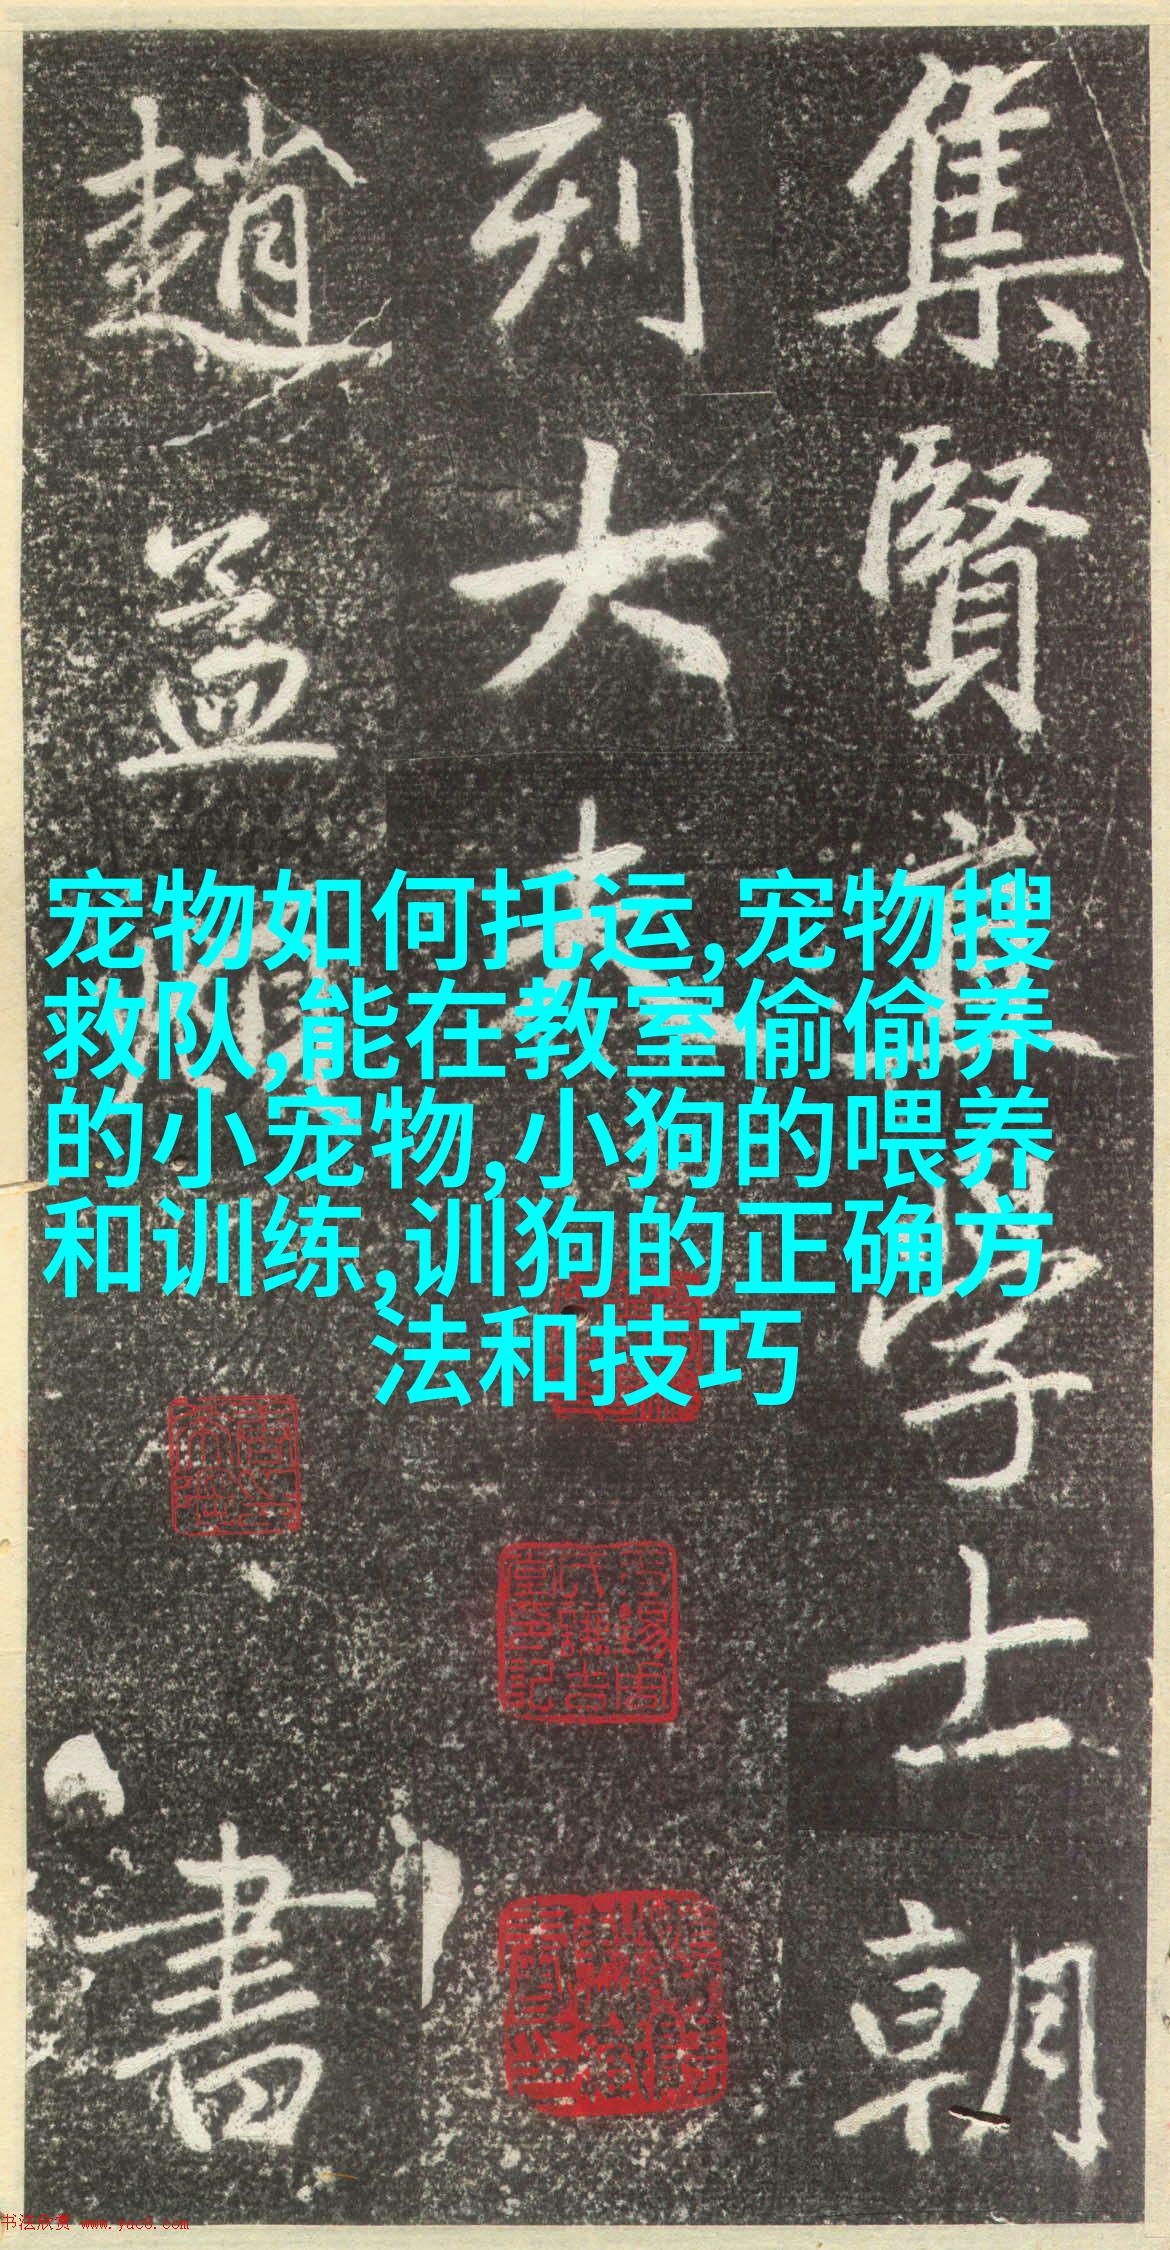 集賢直學士朝
列大夫
趙孟頫書
宠物如何托运,宠物搜
救队,能在教室偷偷养
的小宠物,小狗的喂养
和训练,训狗的正确方
法和技巧
书法欣赏 www.yac8.com